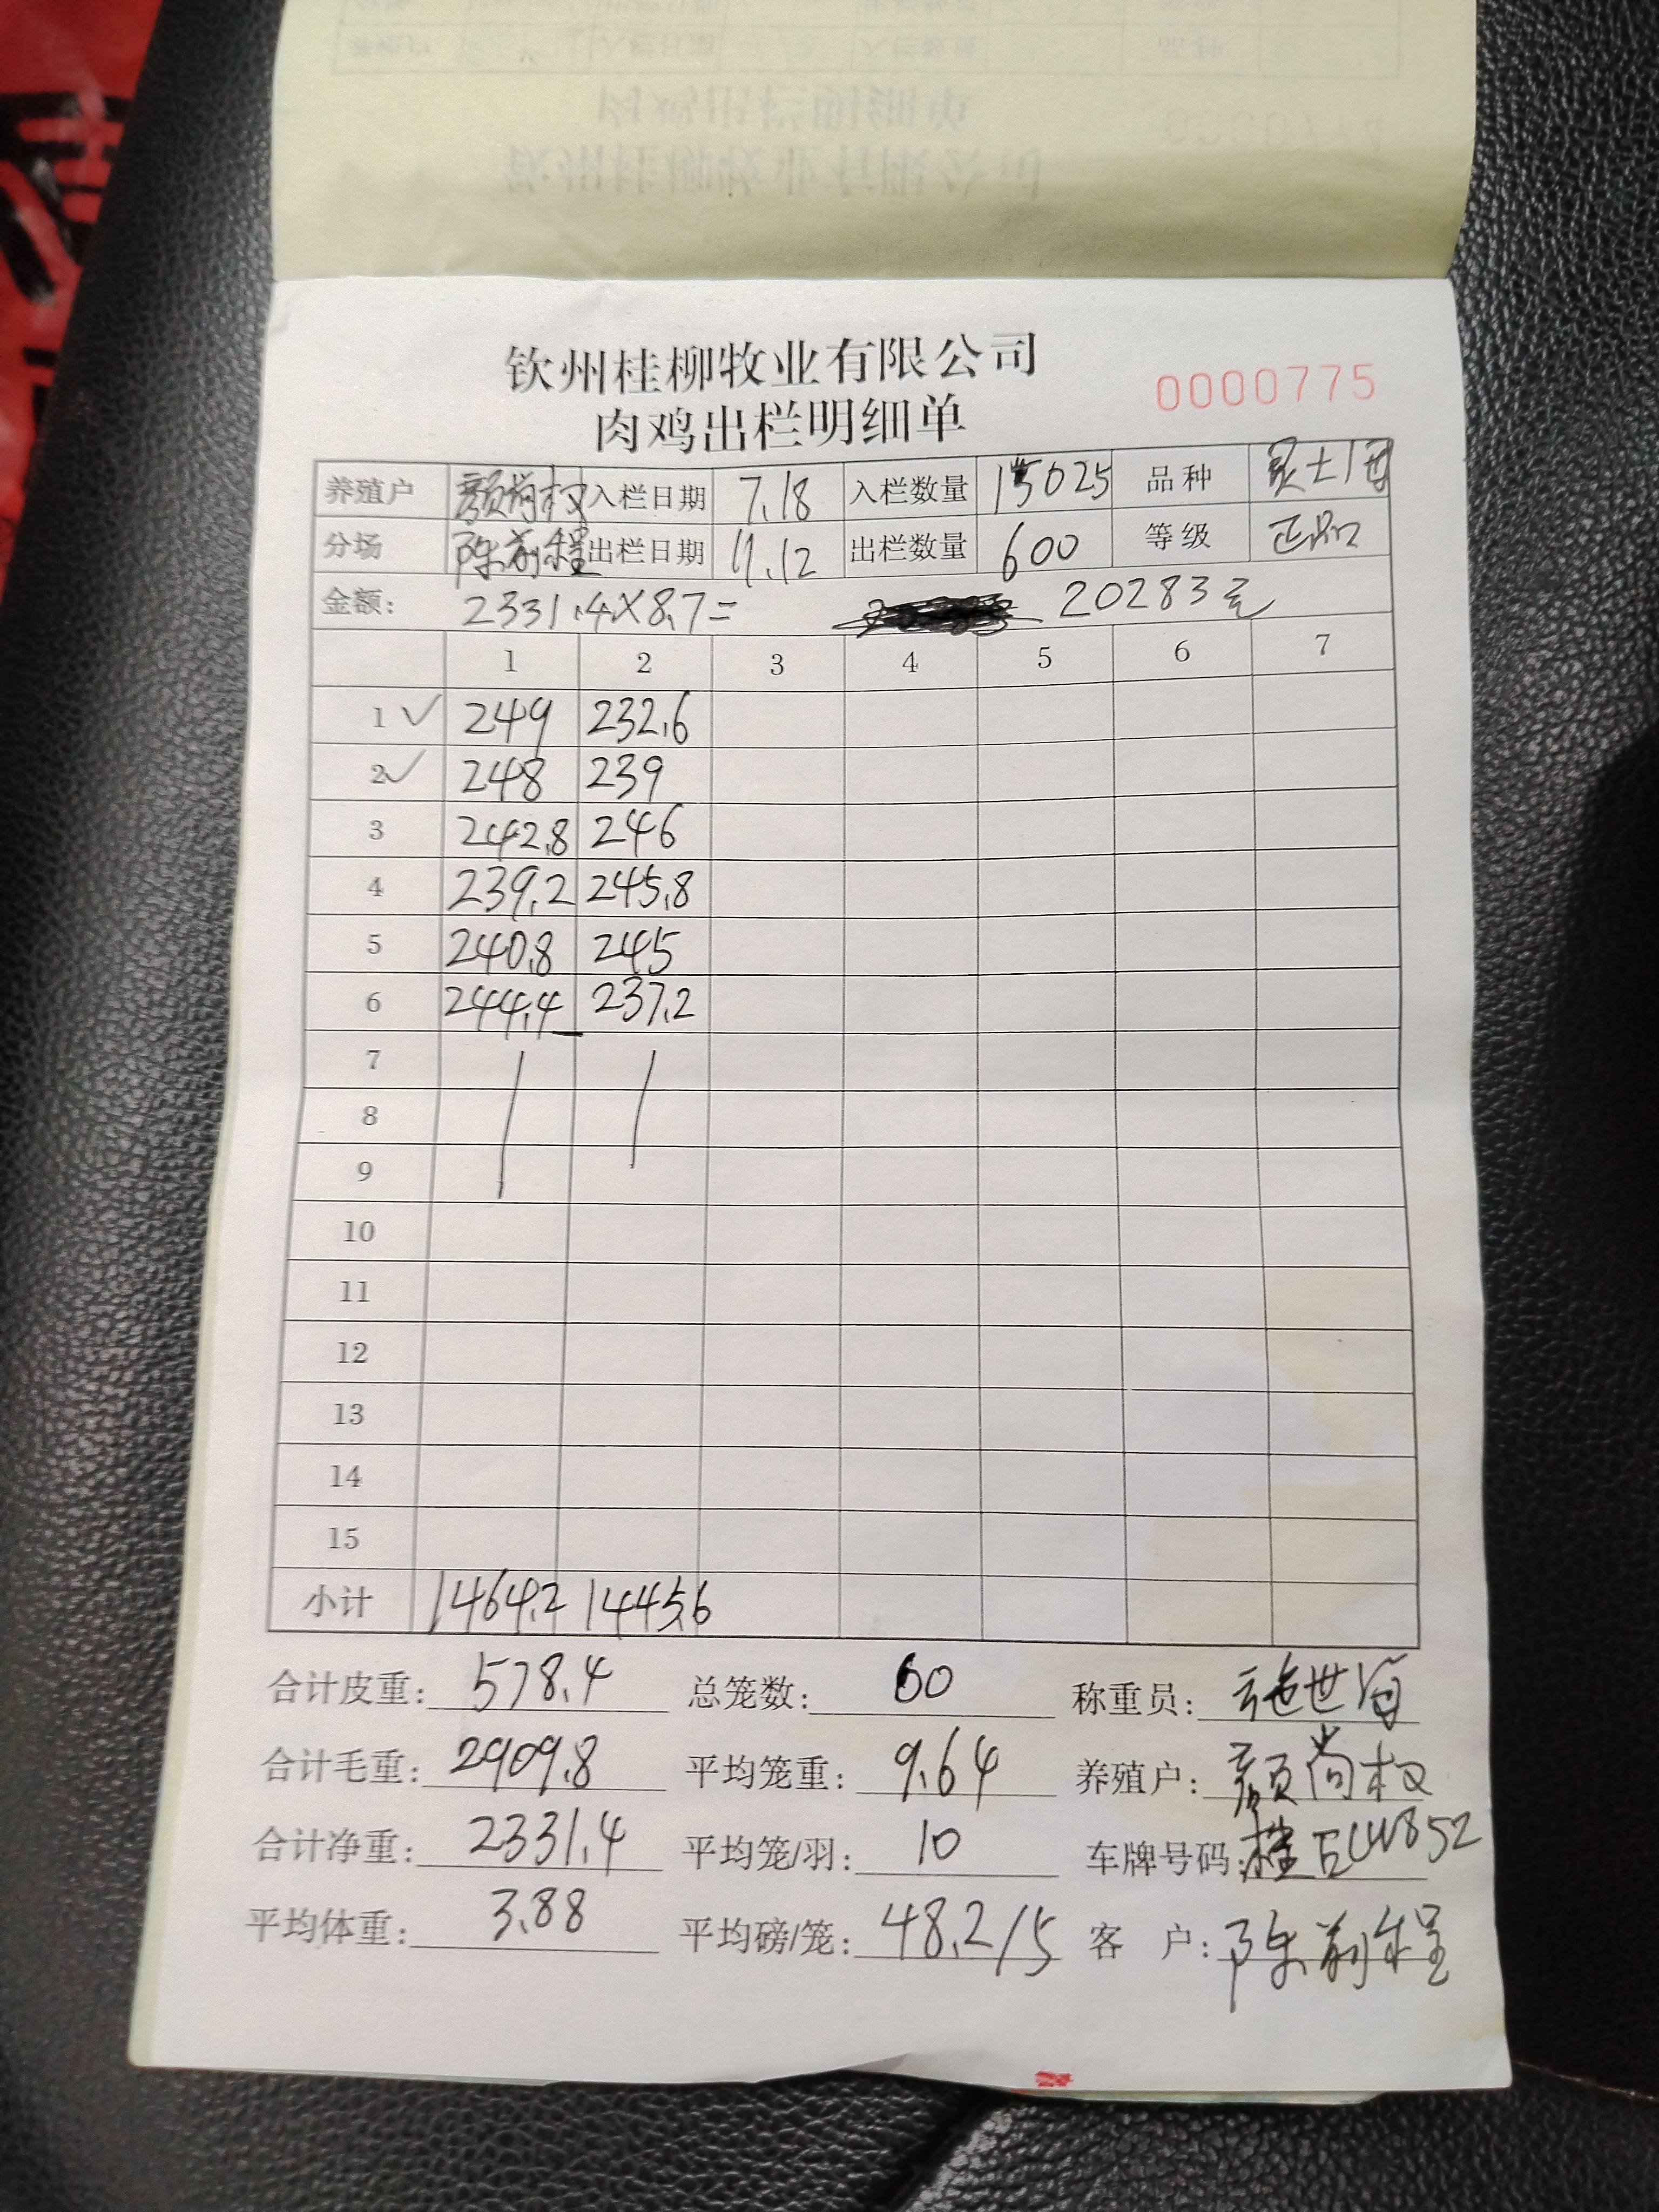 钦州桂柳牧业有限公司
肉鸡出栏明细单
0000775
养殖户 颜尚权 入栏日期 7.18 入栏数量 15025 品种
分场 陈前程 出栏日期 11.12 出栏数量 600 等级 正品
金额: 2331.4×8.7= 20283元
1 2 3 4 5 6 7
1 ✓ 249 232.6
2 ✓ 248 239
3 242.8 246
4 239.2 245.8
5 240.8 245
6 244.4 237.2
7
8
9
10
11
12
13
14
15
小计 1464.2 1445.6
合计皮重: 578.4 总笼数: 60 称重员:
合计毛重: 2909.8 平均笼重: 9.64 养殖户: 颜尚权
合计净重: 2331.4 平均笼/羽: 10 车牌号码:
平均体重: 3.88 平均磅/笼: 48.2/5 客 户: 陈前程